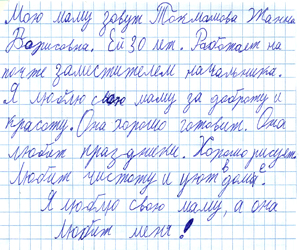 Мою маму зовут Токмашова Жанна
Борисовна. Ей 30 лет. Работает на
почте заместителем начальника.
Я люблю свою маму за доброту и
красоту. Она хорошо готовит. Она
любит праздники. Хорошо рисует.
Любит чистоту и уют в доме.
Я люблю свою маму, а она
любит меня!